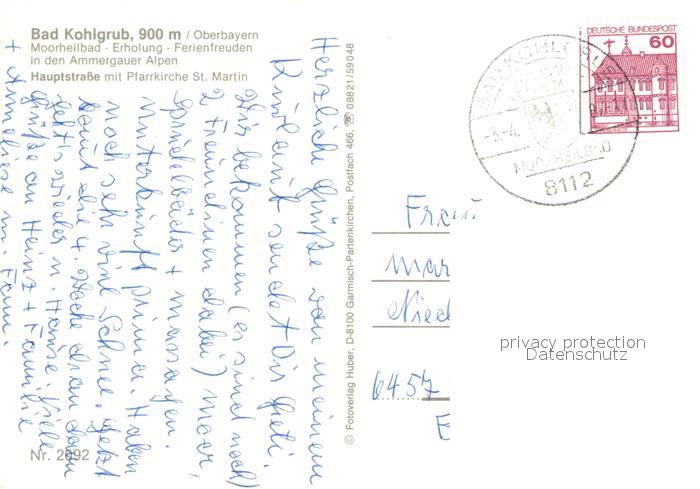 Bad Kohlgrub, 900 m / Oberbayern
Moorheilbad - Erholung - Ferienfreuden
in den Ammergauer Alpen
Hauptstraße mit Pfarrkirche St. Martin
Herzliche Grüße von meinem
Kuraufenthalt sendet Dir Greti.
Wir bekommen (es sind noch
2 Freundinnen dabei) Moor,
Sprudelbäder + Massagen.
Unterkunft prima. Haben
noch sehr viel Schnee. Jetzt
kommt die 4. Woche dran dann
geht's wieder n. Hause. Viele
Grüße an Heinz + Familie
+ Anneliese m. Fam.
Nr. 2692
© Fotoverlag Huber, D-8100 Garmisch-Partenkirchen, Postfach 466, ☎ 08821/59048
DEUTSCHE BUNDESPOST
60
BAD KOHLGRUB
-3.-4.
MOORHEILBAD
8112
Frau
Mar
Nied
6457
privacy protection
Datenschutz